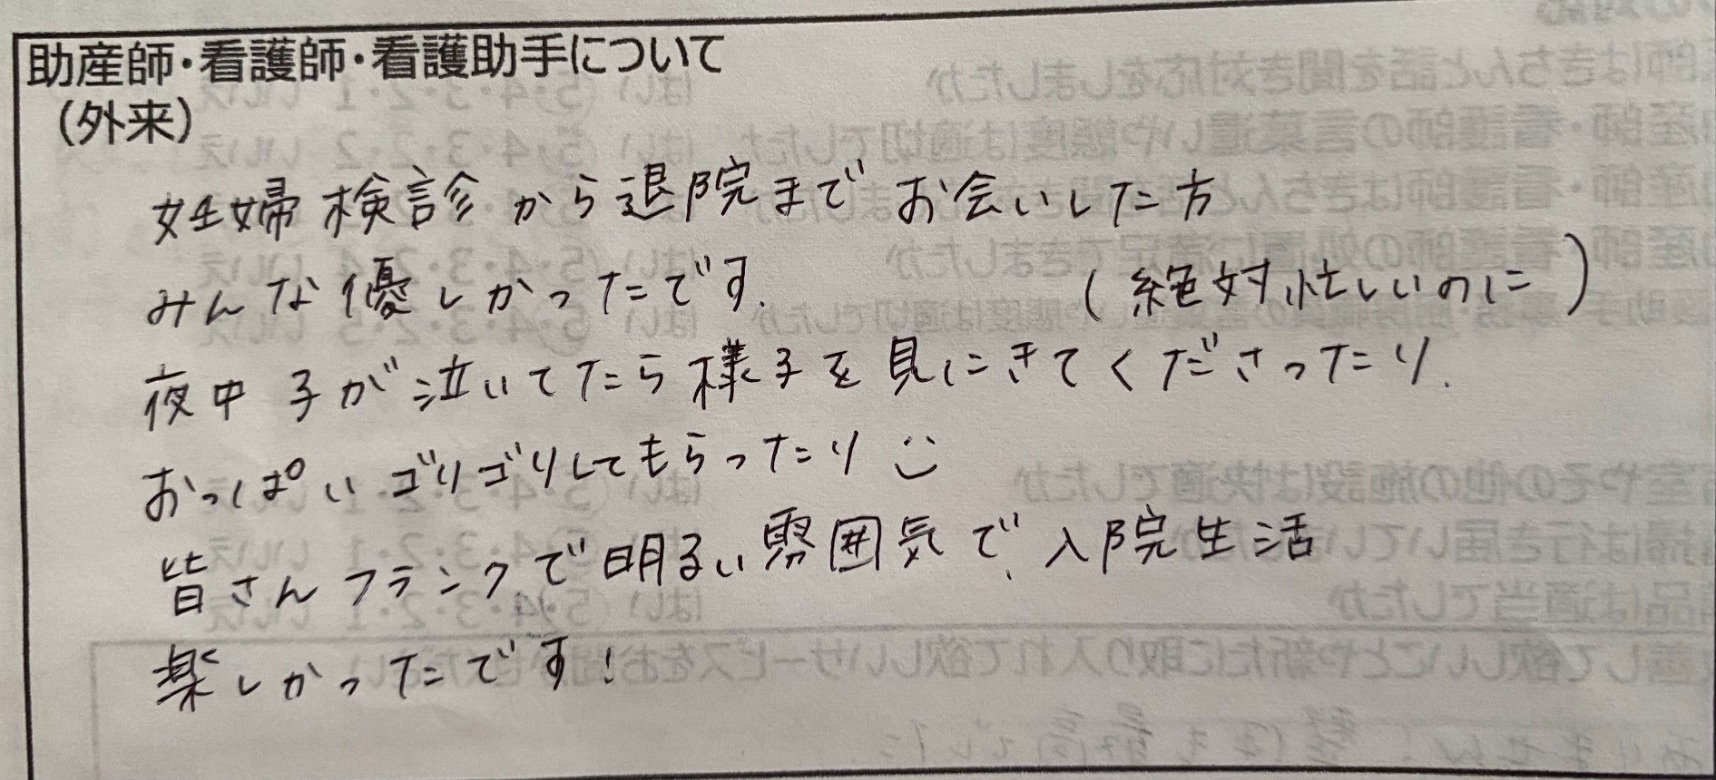 助産師・看護師・看護助手について
（外来）
妊婦検診から退院までお会いした方
みんな優しかったです.
（絶対忙しいのに）
夜中子が泣いてたら様子を見にきてくださったり.
おっぱいゴリゴリしてもらったり
皆さんフランクで明るい雰囲気で、入院生活
楽しかったです！